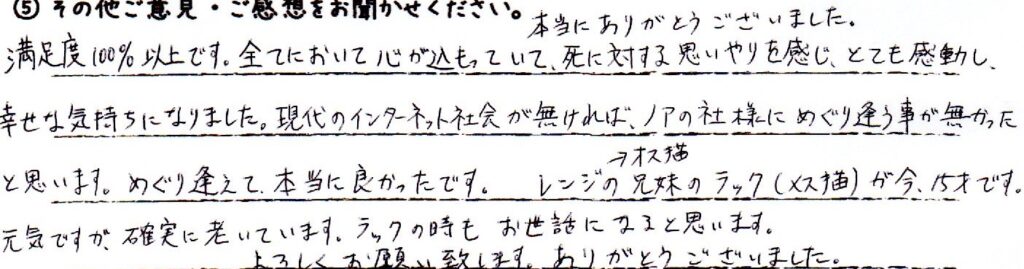 ⑤ その他ご意見・ご感想をお聞かせください。
本当にありがとうございました。
満足度100%以上です。全てにおいて心が込もっていて、死に対する思いやりを感じ、とても感動し、
幸せな気持ちになりました。現代のインターネット社会が無ければ、ノアの社様にめぐり逢う事が無かった
と思います。めぐり逢えて、本当に良かったです。
→オス猫
レンジの兄妹のラック(メス猫)が今、15才です。
元気ですが、確実に老いています。ラックの時もお世話になると思います。
よろしくお願い致します。ありがとうございました。